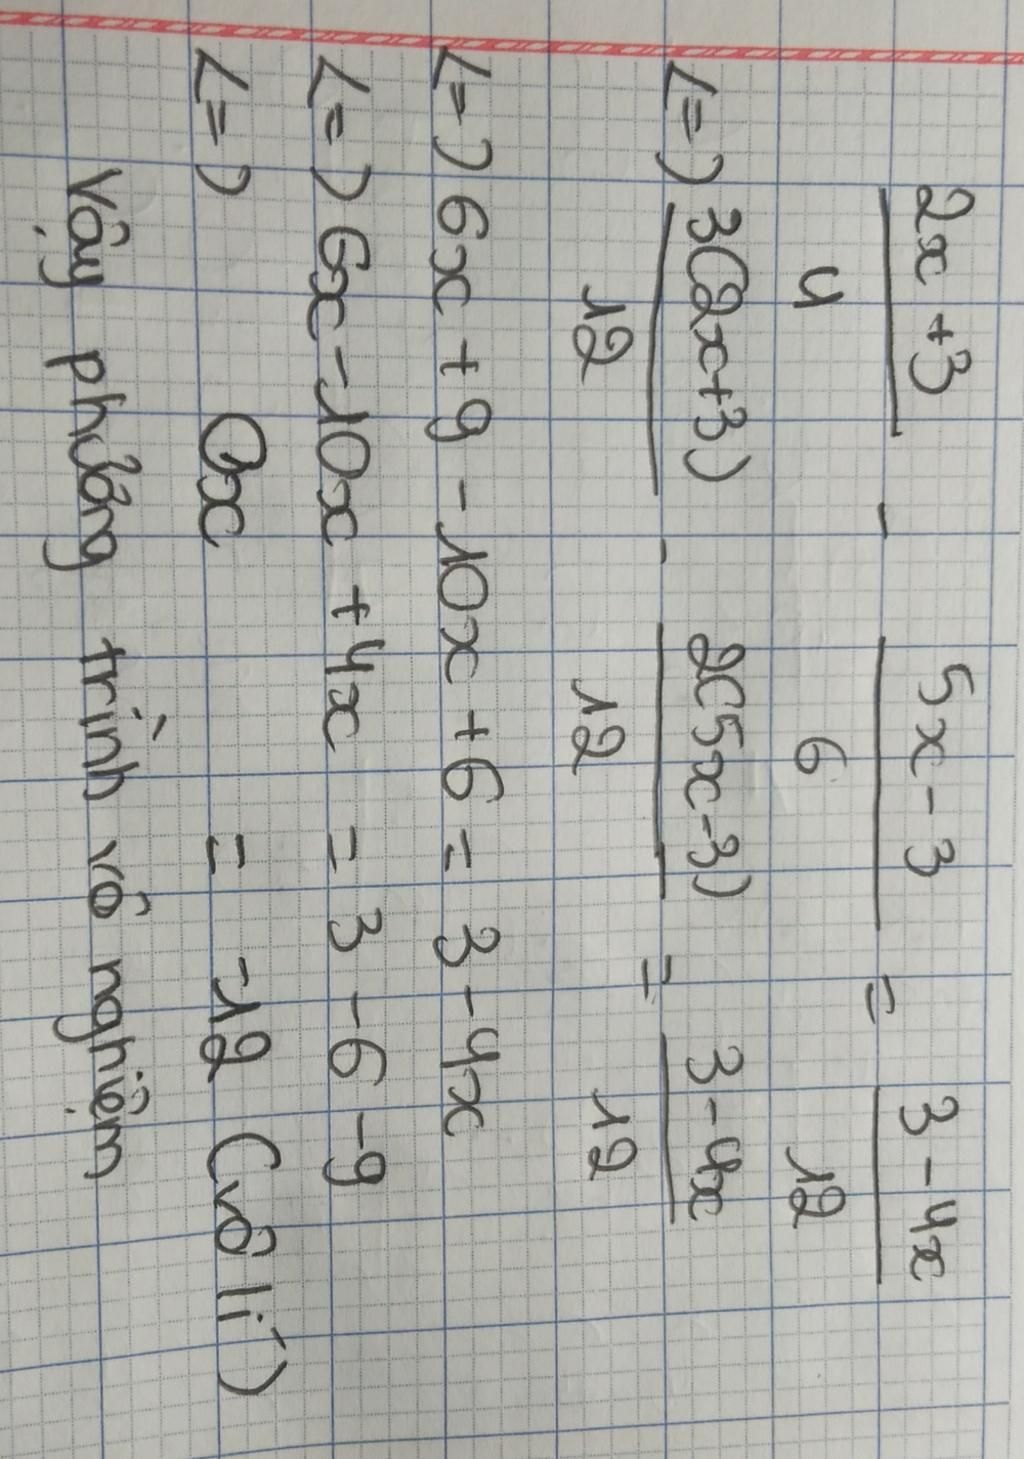 2x + 3 / 4 - 5x - 3 / 6 = 3 - 4x / 12
<=> 3(2x+3) / 12 - 2(5x-3) / 12 = 3-4x / 12
<=> 6x + 9 - 10x + 6 = 3 - 4x
<=> 6x - 10x + 4x = 3 - 6 - 9
<=> 0x = -12 (vô lí)
Vậy phương trình vô nghiệm